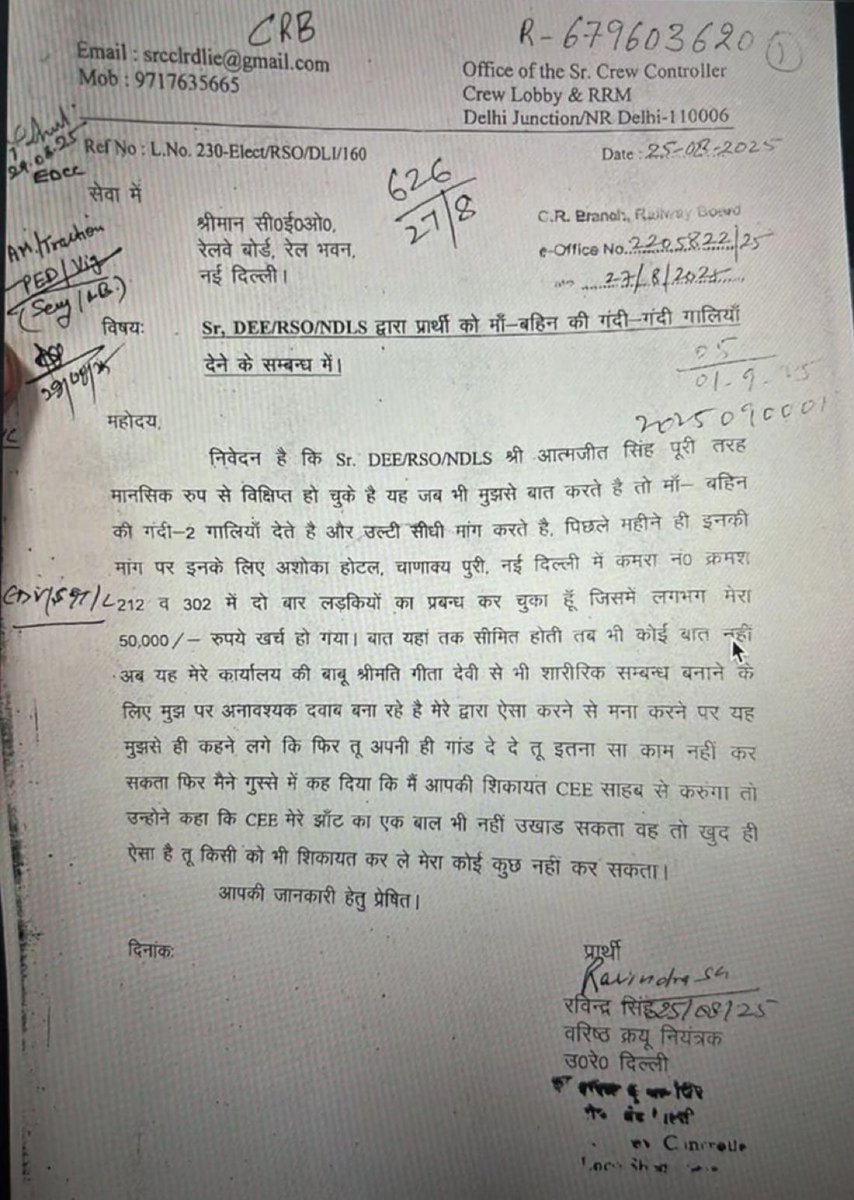 CRB
R-679603620 1
Email : srcclrdlie@gmail.com
Mob : 9717635665
Office of the Sr. Crew Controller
Crew Lobby & RRM
Delhi Junction/NR Delhi-110006
29.08.25
EDCC
Ref No : L.No. 230-Elect/RSO/DLI/160
Date : 25-08-2025
सेवा में
626
27/8
श्रीमान सी0ई0ओ0,
रेलवे बोर्ड, रेल भवन,
नई दिल्ली।
C.R. Branch, Railway Board
e-Office No. 2205822/25
27/8/2025
AM/Traction
PED/Vig
29/08/25
विषयः Sr, DEE/RSO/NDLS द्वारा प्रार्थी को माँ–बहिन की गंदी–गंदी गालियाँ
देने के सम्बन्ध में।
05
01-9-25
2025090001
महोदय,
निवेदन है कि Sr. DEE/RSO/NDLS श्री आत्मजीत सिंह पूरी तरह
मानसिक रुप से विक्षिप्त हो चुके है यह जब भी मुझसे बात करते है तो माँ– बहिन
की गंदी–2 गालियाँ देते है और उल्टी सीधी मांग करते है, पिछले महीने ही इनकी
मांग पर इनके लिए अशोका होटल, चाणाक्य पुरी, नई दिल्ली में कमरा नं0 क्रमश
212 व 302 में दो बार लड़कियों का प्रबन्ध कर चुका हूँ जिसमें लगभग मेरा
50,000/– रुपये खर्च हो गया। बात यहां तक सीमित होती तब भी कोई बात नहीं
अब यह मेरे कार्यालय की बाबू श्रीमति गीता देवी से भी शारीरिक सम्बन्ध बनाने के
लिए मुझ पर अनावश्यक दवाब बना रहे है मेरे द्वारा ऐसा करने से मना करने पर यह
मुझसे ही कहने लगे कि फिर तू अपनी ही गांड दे दे तू इतना सा काम नहीं कर
सकता फिर मैने गुस्से में कह दिया कि मैं आपकी शिकायत CEE साहब से करुगा तो
उन्होने कहा कि CEE मेरे झाँट का एक बाल भी नहीं उखाड सकता वह तो खुद ही
ऐसा है तू किसी को भी शिकायत कर ले मेरा कोई कुछ नहीं कर सकता।
आपकी जानकारी हेतु प्रेषित।
दिनांकः
प्रार्थी
Ravindra Sh
रविन्द्र सिंह 25/08/25
वरिष्ठ क्रयू नियंत्रक
उ0रे0 दिल्ली